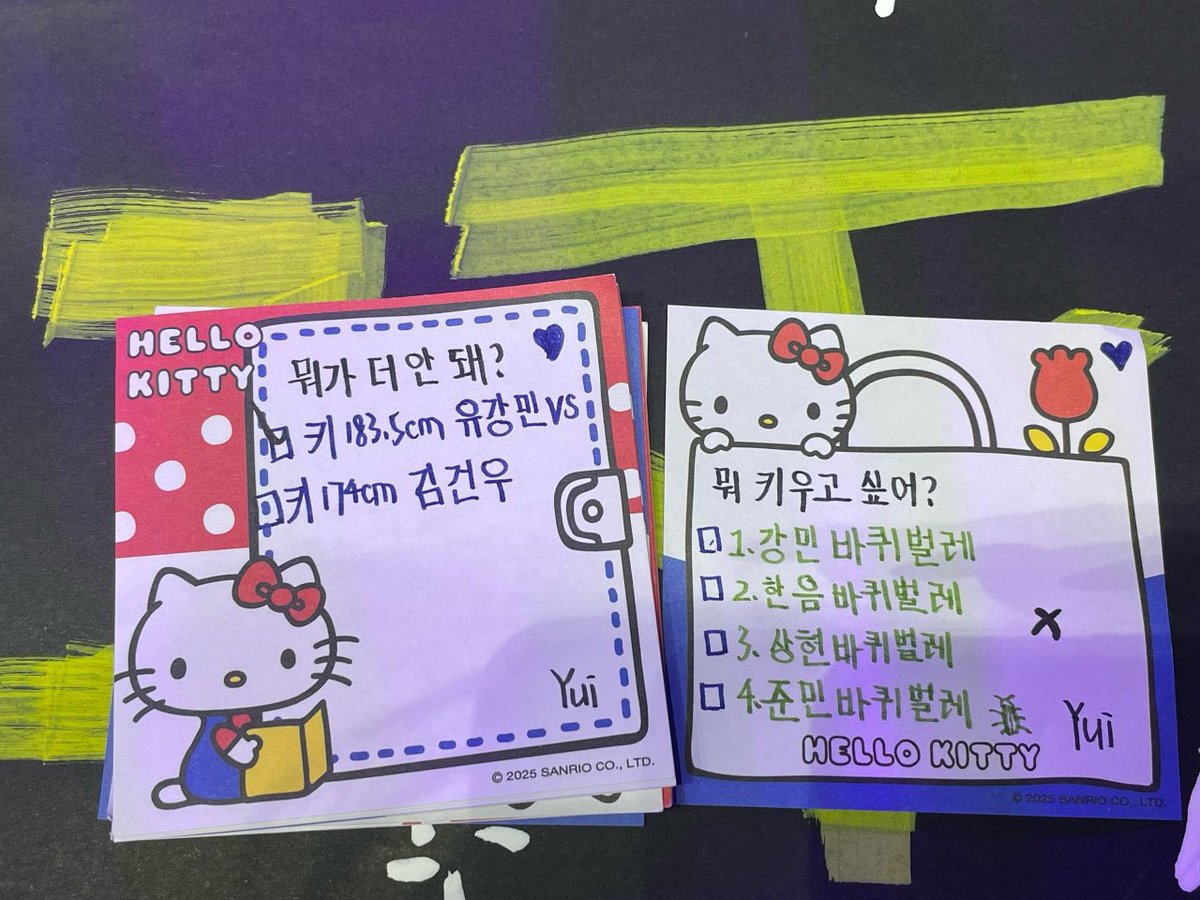 HELLO
KITTY
뭐가 더 안 돼?
키 183.5cm 유강민 VS
키 174cm 김건우
Yui
© 2025 SANRIO CO., LTD.
뭐 키우고 싶어?
1. 강민 바퀴벌레
2. 한음 바퀴벌레
3. 상현 바퀴벌레
4. 준민 바퀴벌레
x
Yui
HELLO KITTY
© 2025 SANRIO CO., LTD.